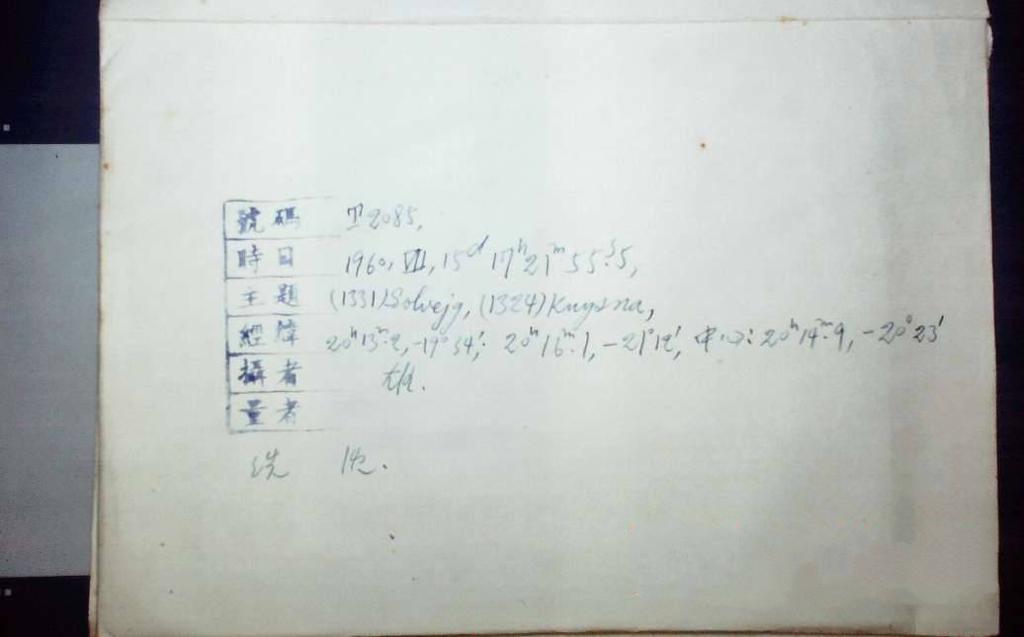 號碼 T2085.
時日 1960, VII, 15ᵈ 17ʰ21ᵐ55ˢ.5,
主題 (1331)Solvejg, (1324)Knysna,
經緯 20ʰ13ᵐ.2, -19°34′; 20ʰ16ᵐ.1, -21°12′, 中心: 20ʰ14ᵐ.9, -20°23′
攝者
量者
洗